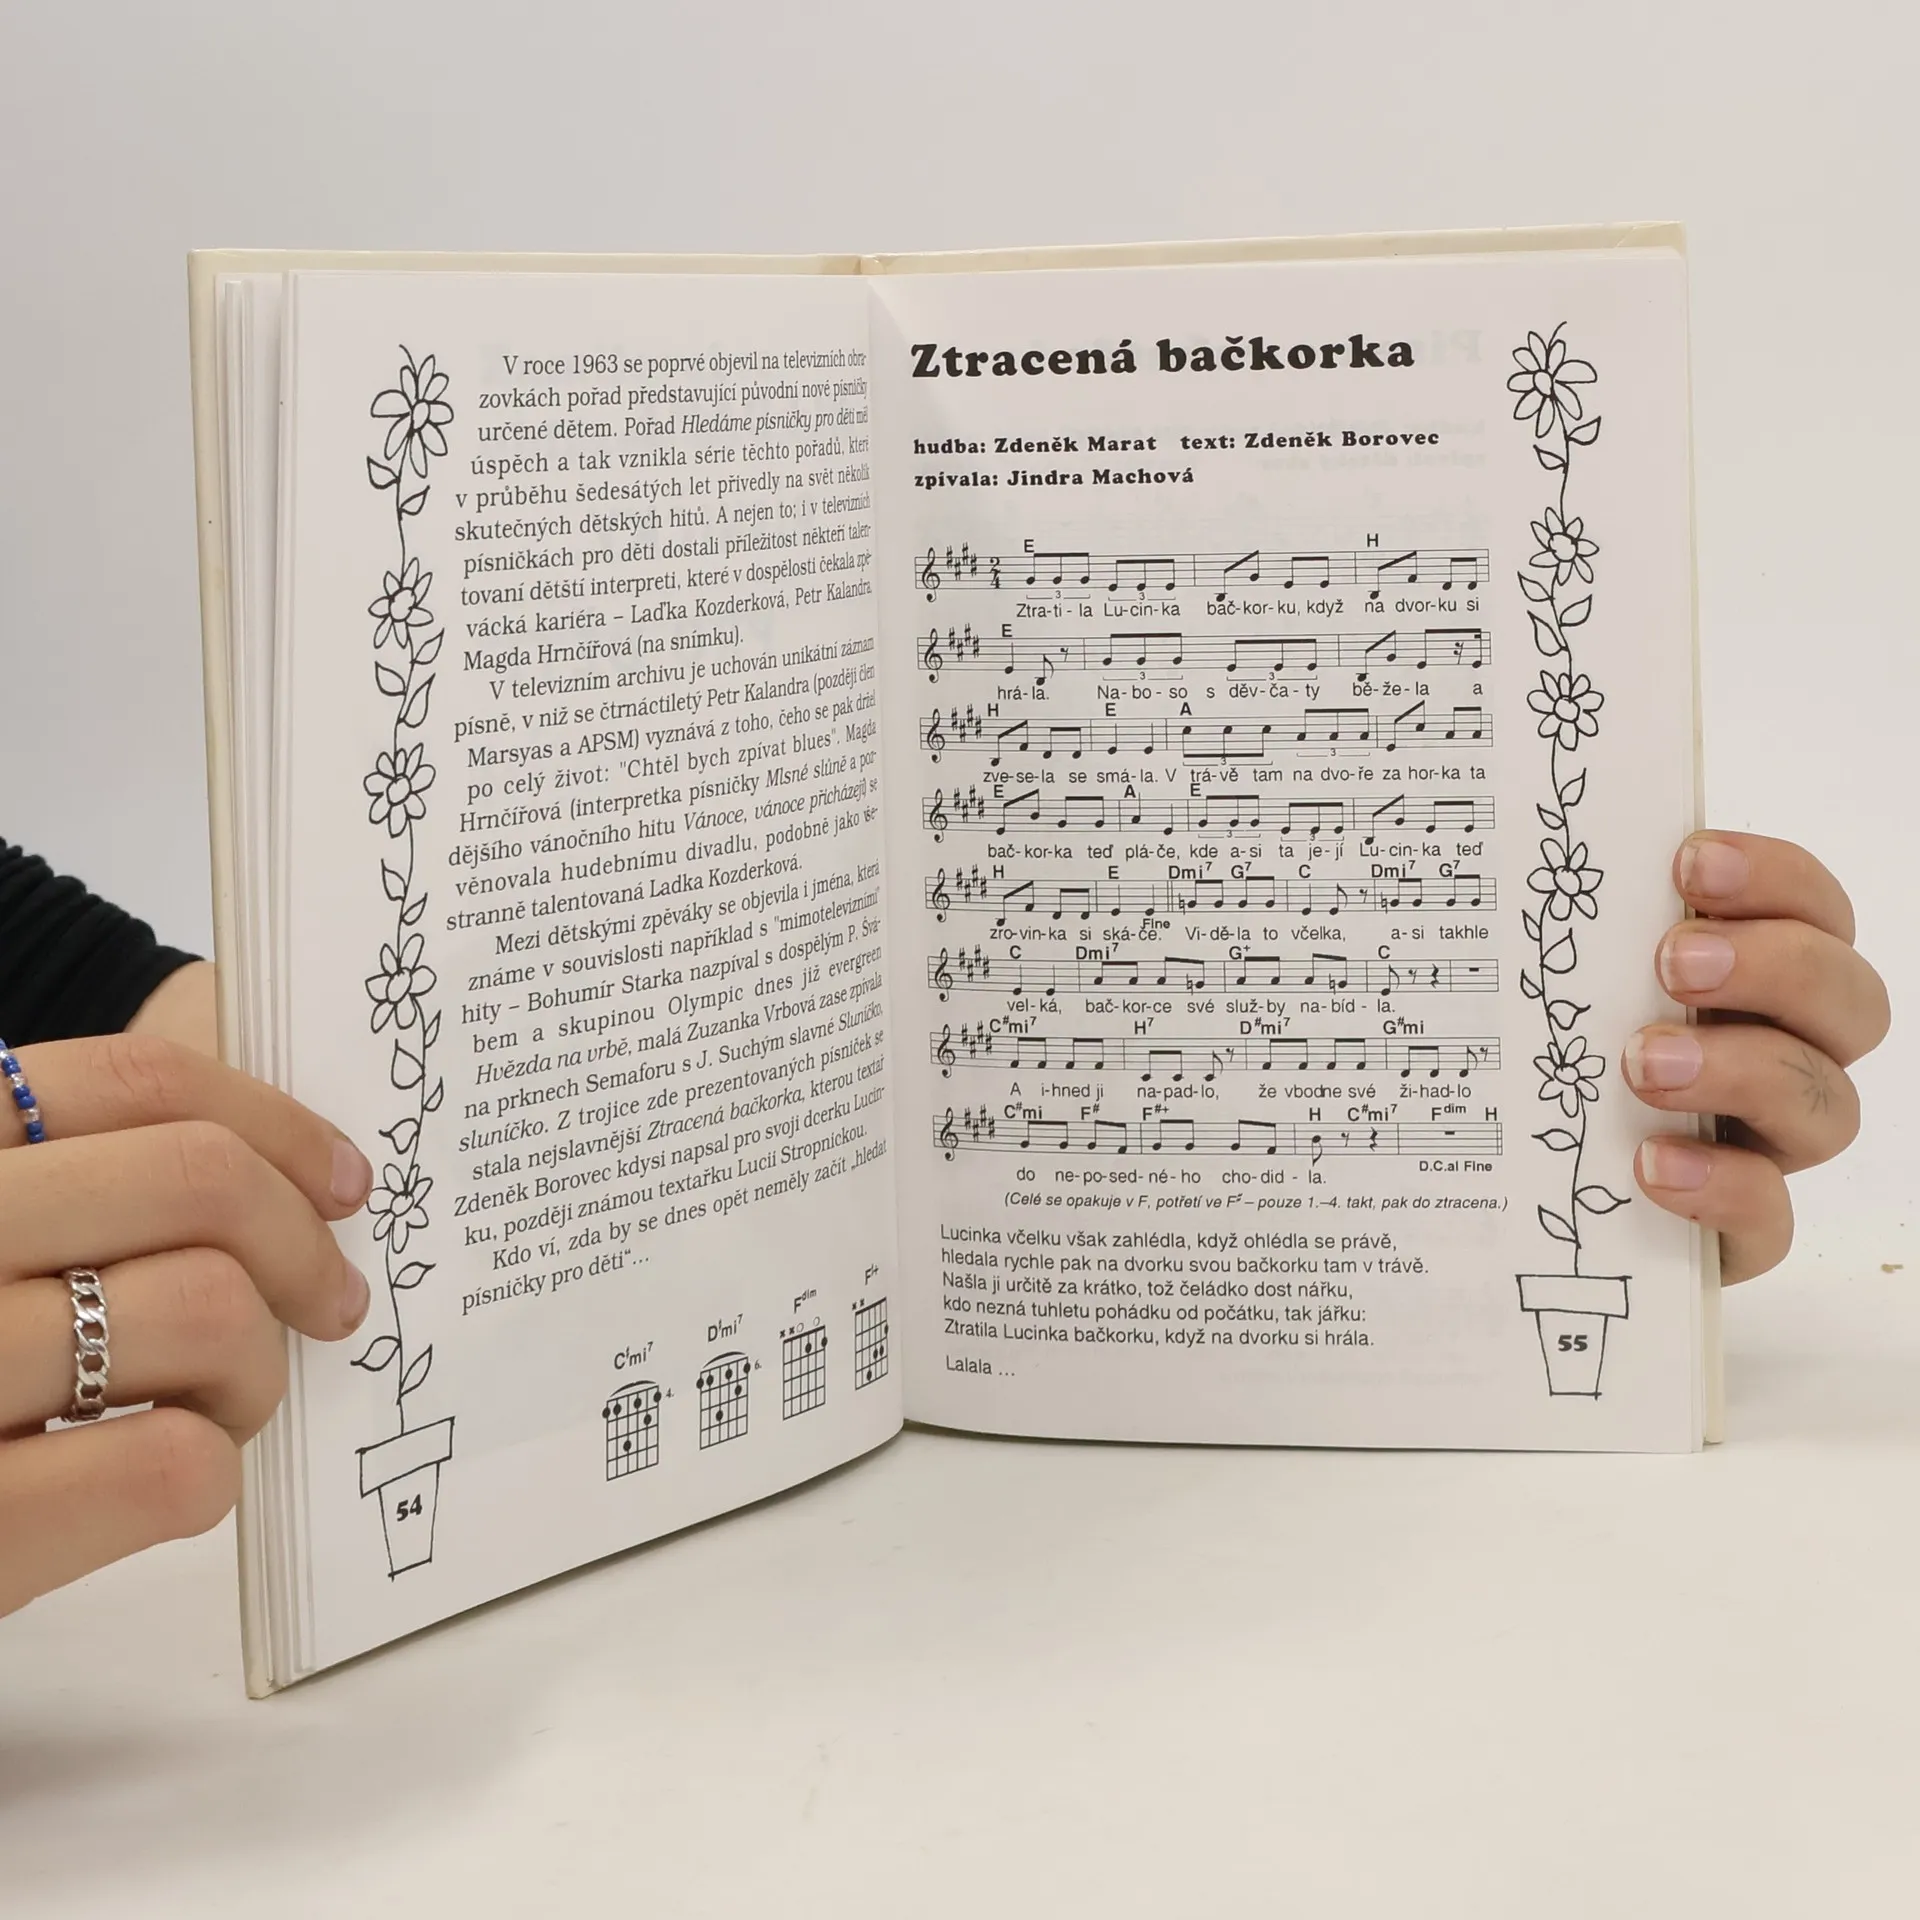 V roce 1963 se poprvé objevil na televizních obra-
zovkách pořad představující původní nové písničky
určené dětem. Pořad Hledáme písničky pro děti měl
úspěch a tak vznikla série těchto pořadů, které
v průběhu šedesátých let přivedly na svět několik
skutečných dětských hitů. A nejen to; i v televizních
písničkách pro děti dostali příležitost někteří talen-
tovaní dětští interpreti, které v dospělosti čekala zpě-
vácká kariéra – Laďka Kozderková, Petr Kalandra,
Magda Hrnčířová (na snímku).
V televizním archivu je uchován unikátní záznam
písně, v niž se čtrnáctiletý Petr Kalandra (později člen
Marsyas a APSM) vyznává z toho, čeho se pak držel
po celý život: "Chtěl bych zpívat blues". Magda
Hrnčířová (interpretka písničky Mlsné slůně a poz-
dějšího vánočního hitu Vánoce, vánoce přicházejí) se
věnovala hudebnímu divadlu, podobně jako vše-
stranně talentovaná Ladka Kozderková.
Mezi dětskými zpěváky se objevila i jména, která
známe v souvislosti například s "mimotelevizními"
hity – Bohumír Starka nazpíval s dospělým P. Švá-
bem a skupinou Olympic dnes již evergreen
Hvězda na vrbě, malá Zuzanka Vrbová zase zpívala
na prknech Semaforu s J. Suchým slavné Sluníčko,
sluníčko. Z trojice zde prezentovaných písniček se
stala nejslavnější Ztracená bačkorka, kterou textař
Zdeněk Borovec kdysi napsal pro svoji dcerku Lucin-
ku, později známou textařku Lucii Stropnickou.
Kdo ví, zda by se dnes opět neměly začít „hledat
písničky pro děti“...
C♯mi7 D♯mi7 Fdim F♯+
4. 6.
54
Ztracená bačkorka
hudba: Zdeněk Marat text: Zdeněk Borovec
zpívala: Jindra Machová
E H
2 4
3 3
Ztra-ti-la Lu-cin-ka bač-kor-ku, když na dvor-ku si
E
3 3
hrá-la. Na-bo-so s děv-ča-ty bě-že-la a
H E A
3 3
zve-se-la se smá-la. V trá-vě tam na dvo-ře za hor-ka ta
E A E
3 3
bač-kor-ka teď plá-če, kde a-si ta je-jí Lu-cin-ka teď
H E Dmi7 G7 C Dmi7 G7
Fine
zro-vin-ka si ská-če. Vi-dě-la to včelka, a-si takhle
C Dmi7 G+ C
vel-ká, bač-kor-ce své služ-by na-bíd-la.
C#mi7 H7 D#mi7 G#mi
A i-hned ji na-pad-lo, že vbodne své ži-had-lo
C#mi F# F#+ H C#mi7 Fdim H
D.C.al Fine
do ne-po-sed-né-ho cho-did-la.
(Celé se opakuje v F, potřetí ve F♯ – pouze 1.–4. takt, pak do ztracena.)
Lucinka včelku však zahlédla, když ohlédla se právě,
hledala rychle pak na dvorku svou bačkorku tam v trávě.
Našla ji určitě za krátko, tož čeládko dost nářku,
kdo nezná tuhletu pohádku od počátku, tak jářku:
Ztratila Lucinka bačkorku, když na dvorku si hrála.
Lalala ...
55